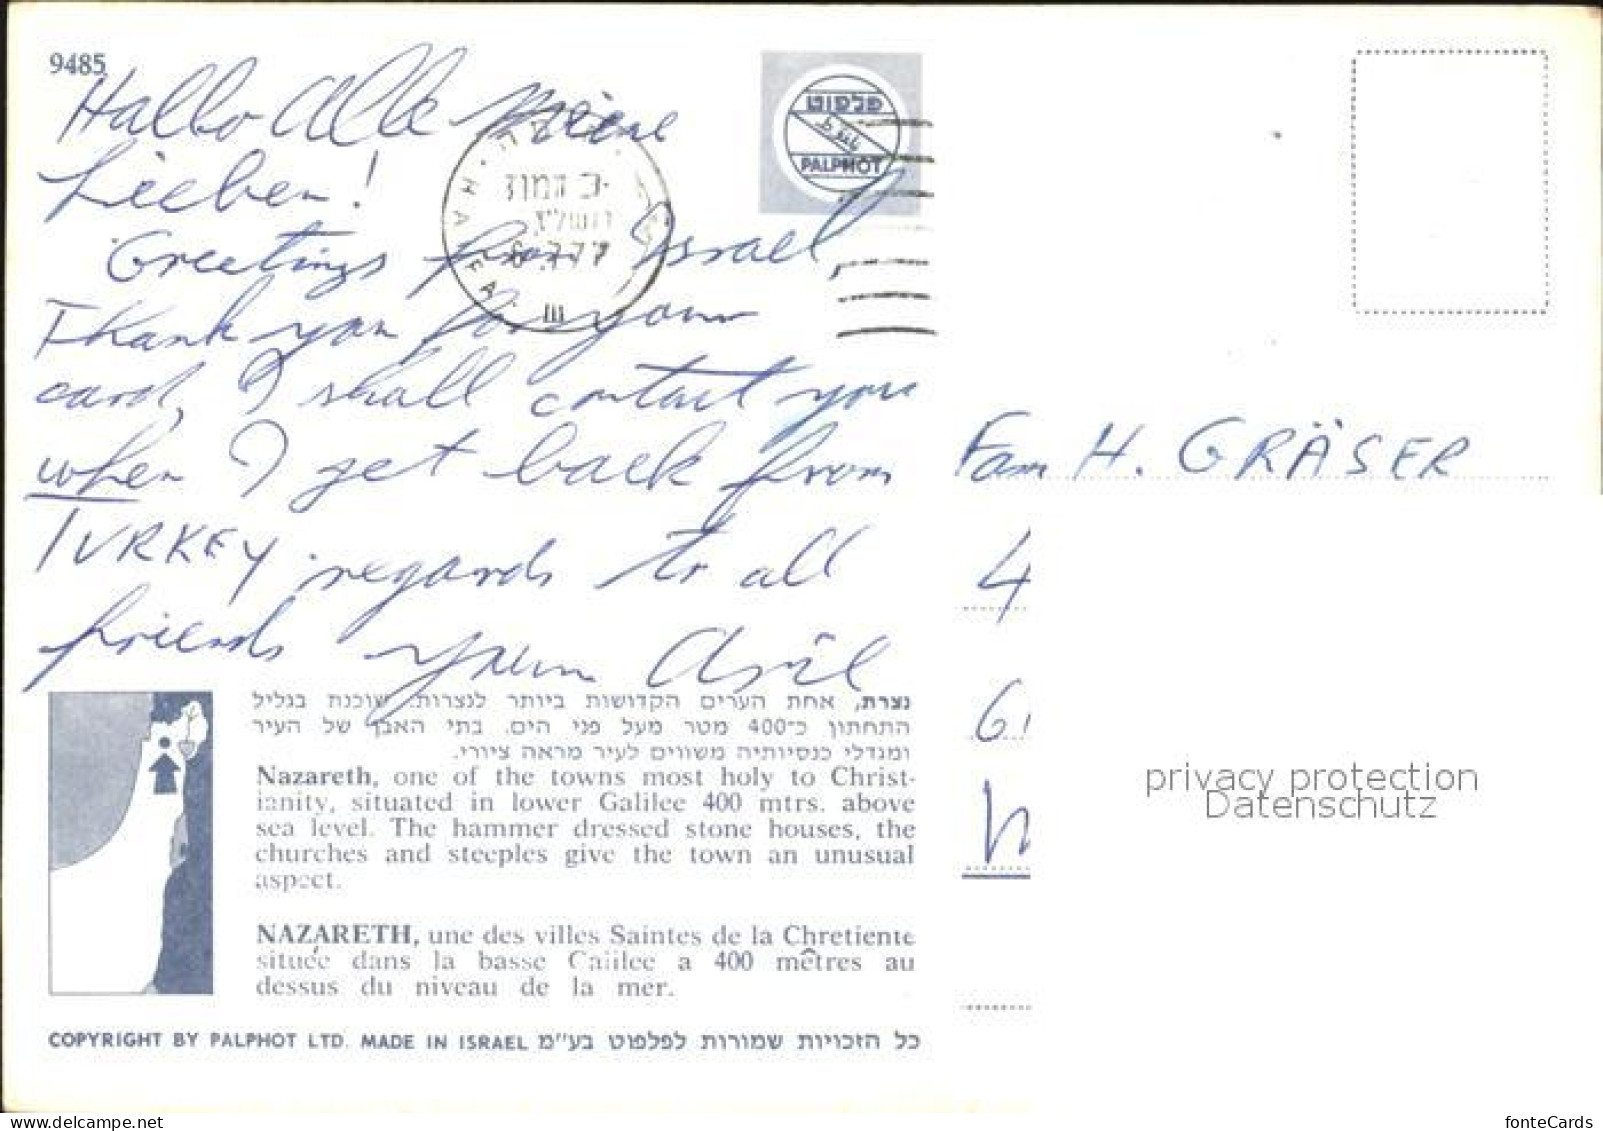 9485
Hallo Alle meine
Lieben!
Greetings from Israel,
Thank you for your
card, I shall contact you
when I get back from
TURKEY. regards to all
friends
פלפוט
PALPHOT
כ' תמוז
תשל"ז
6.7.77
III
Fam H. GRÄSER
נצרת, אחת הערים הקדושות ביותר לנצרות. שוכנת בגליל
התחתון כ־400 מטר מעל פני הים. בתי האבן של העיר
ומגדלי כנסיותיה משווים לעיר מראה ציורי.
Nazareth, one of the towns most holy to Christ-
ianity, situated in lower Galilee 400 mtrs. above
sea level. The hammer dressed stone houses, the
churches and steeples give the town an unusual
aspect.
NAZARETH, une des villes Saintes de la Chretiente
située dans la basse Galilee a 400 mêtres au
dessus du niveau de la mer.
COPYRIGHT BY PALPHOT LTD. MADE IN ISRAEL כל הזכויות שמורות לפלפוט בע"מ
privacy protection
Datenschutz
fonteCards